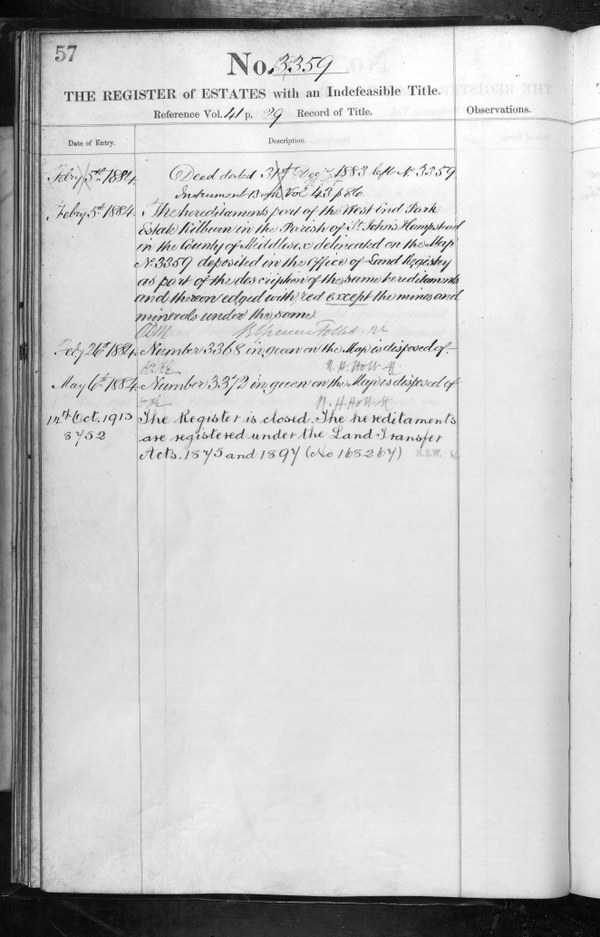 57
No. 3359
THE REGISTER of ESTATES with an Indefeasible Title.
Reference Vol. 41 p. 29 Record of Title.
Observations.
Date of Entry.
Description.
Feby 5th 1884. Deed dated 31st Decr 1883 left No. 3359
Instrument Book Vol 43 p 86
Feby 5th 1884. The hereditaments part of the West End Park
Estate Kilburn in the Parish of St. John's Hampstead
in the County of Middlesex delineated on the Map
No. 3359 deposited in the Office of Land Registry
as part of the description of the same hereditaments
and thereon edged with red except the mines and
minerals under the same
Feby 26th 1884. Number 3368 in green on the Map is disposed of
R. H. Holt
May 6th 1884. Number 3372 in green on the Map is disposed of
R. H. Holt
14th Oct. 1913 The Register is closed. The hereditaments
8752 are registered under the Land Transfer
Acts. 1875 and 1897 (No 168267)